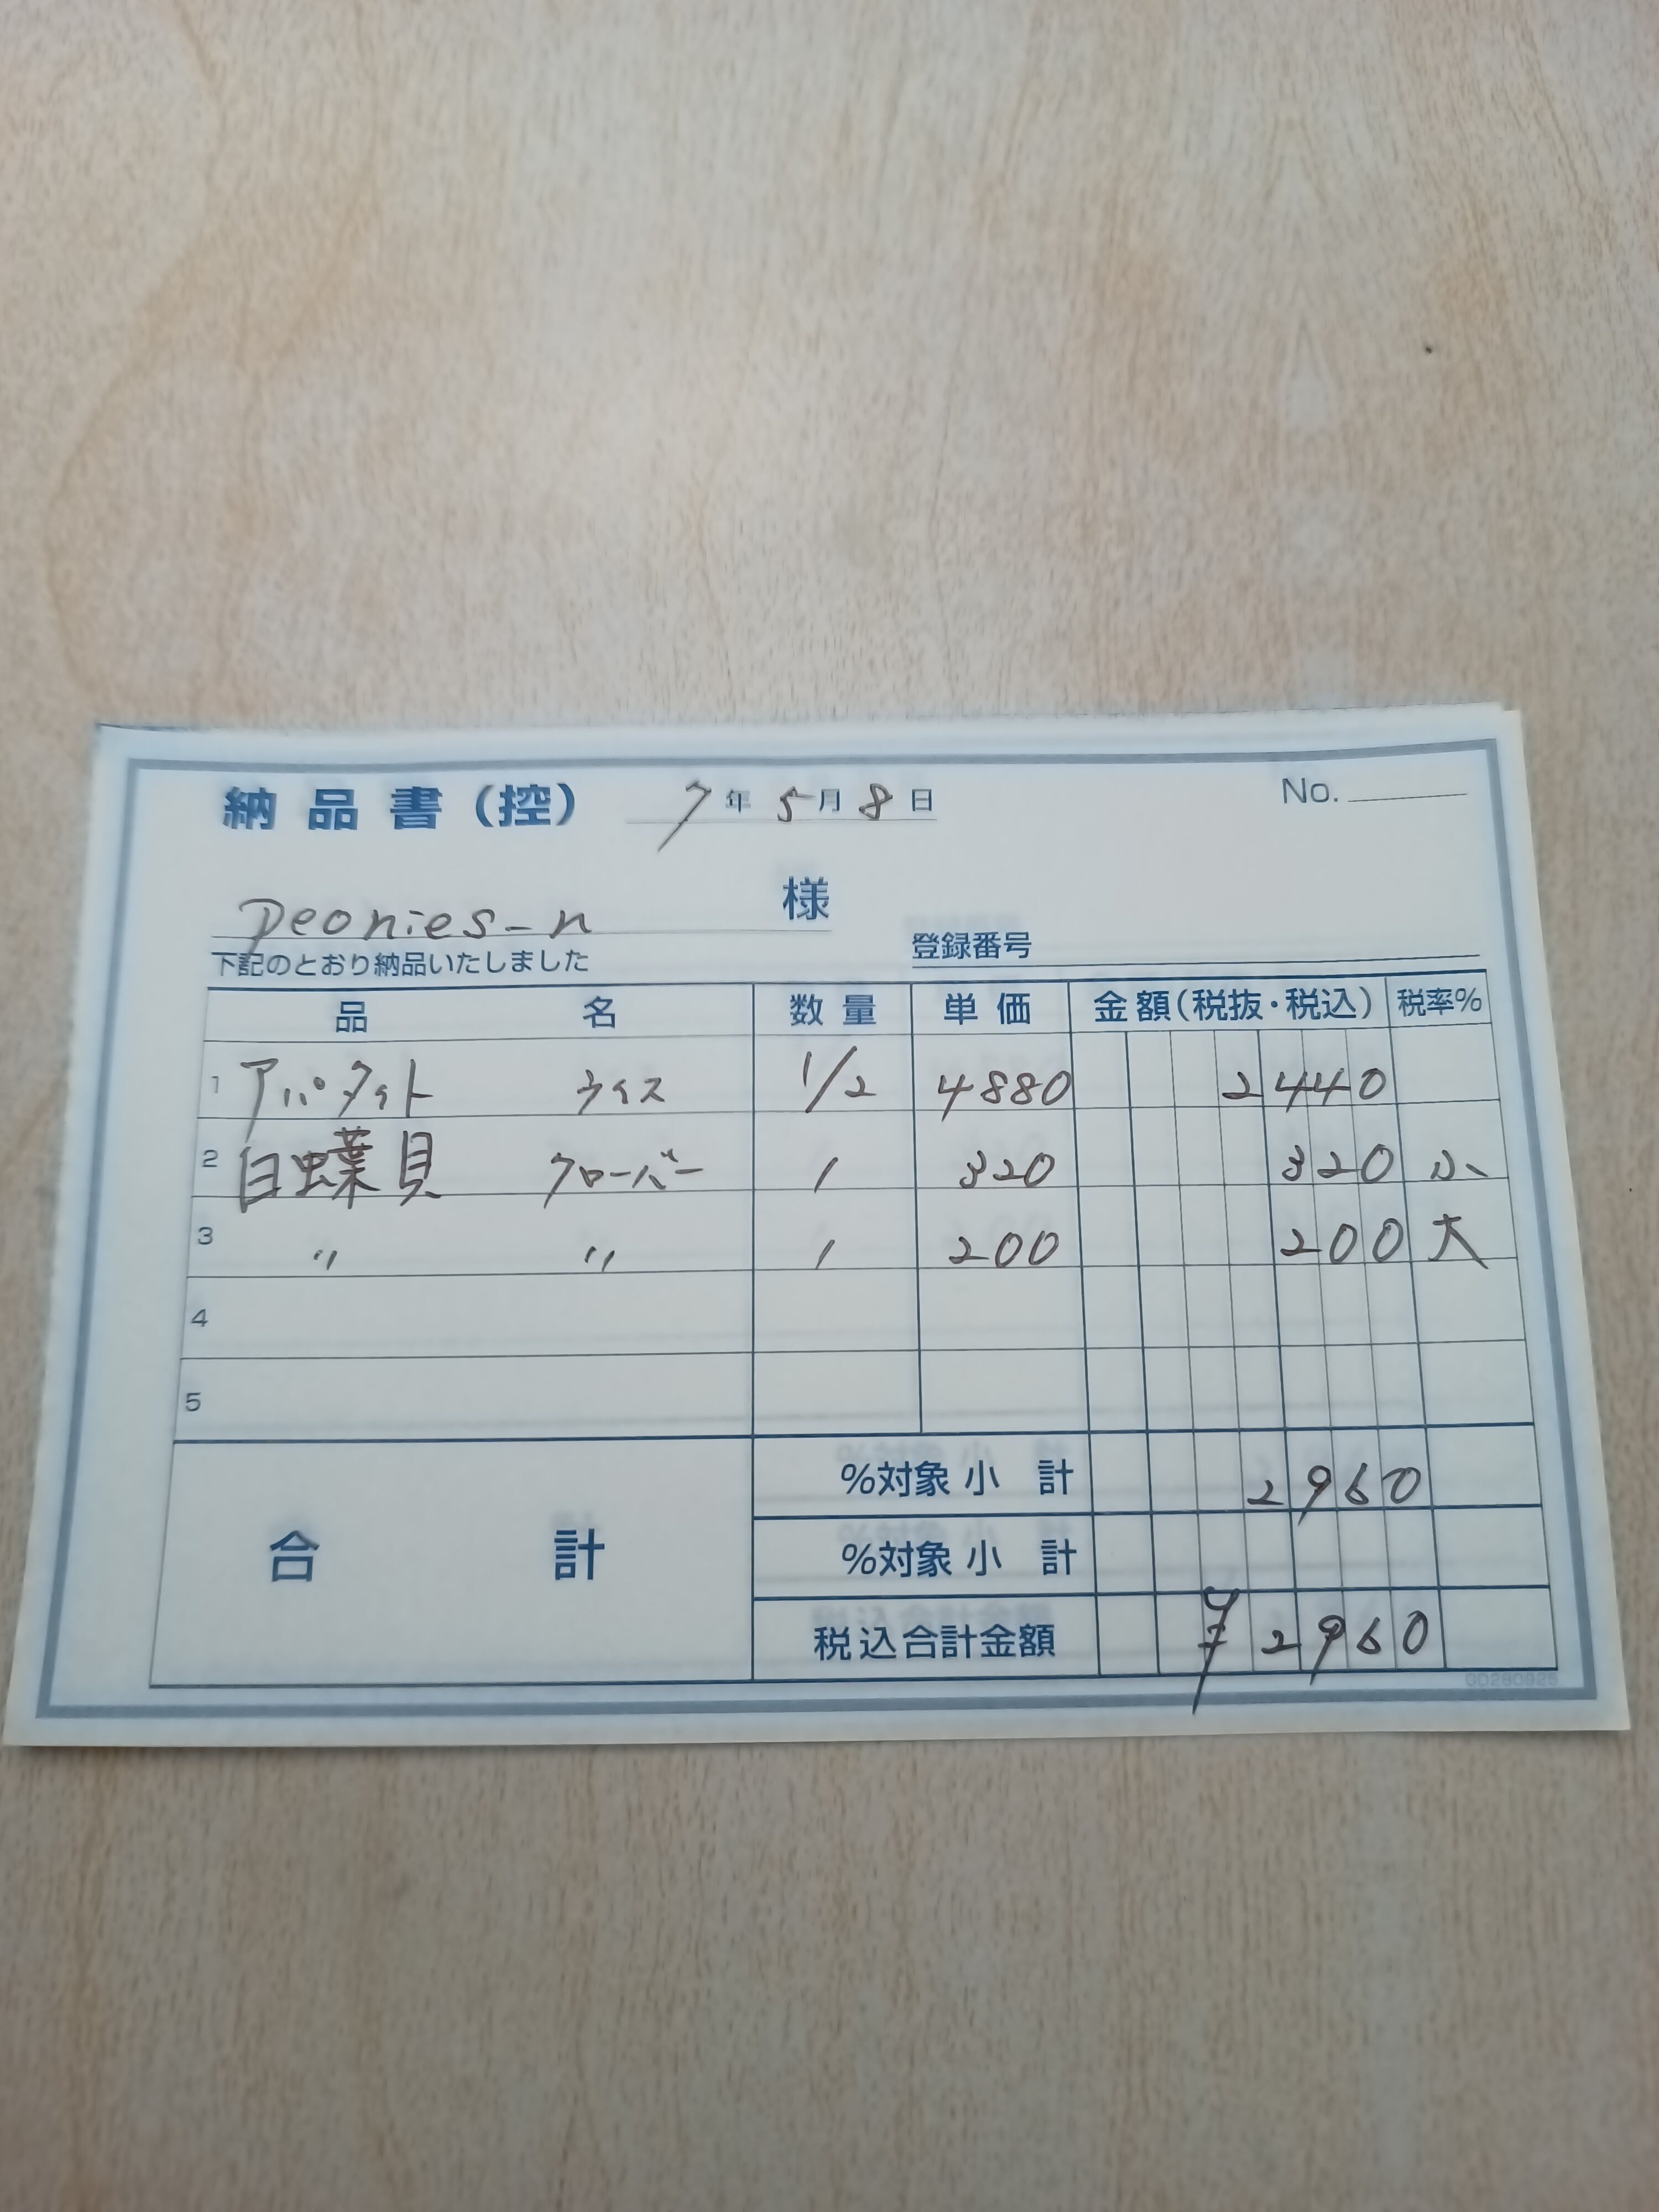 納品書(控) 7年5月8日 No.
peonies-n 様
下記のとおり納品いたしました 登録番号
品名 数量 単価 金額(税抜・税込) 税率%
1 アパタイト ライス 1/2 4880 2440
2 白蝶貝 クローバー 1 320 320 小
3 〃 〃 1 200 200 大
4
5
合計
%対象小計 2960
%対象小計
税込合計金額 ¥2960
GD280925